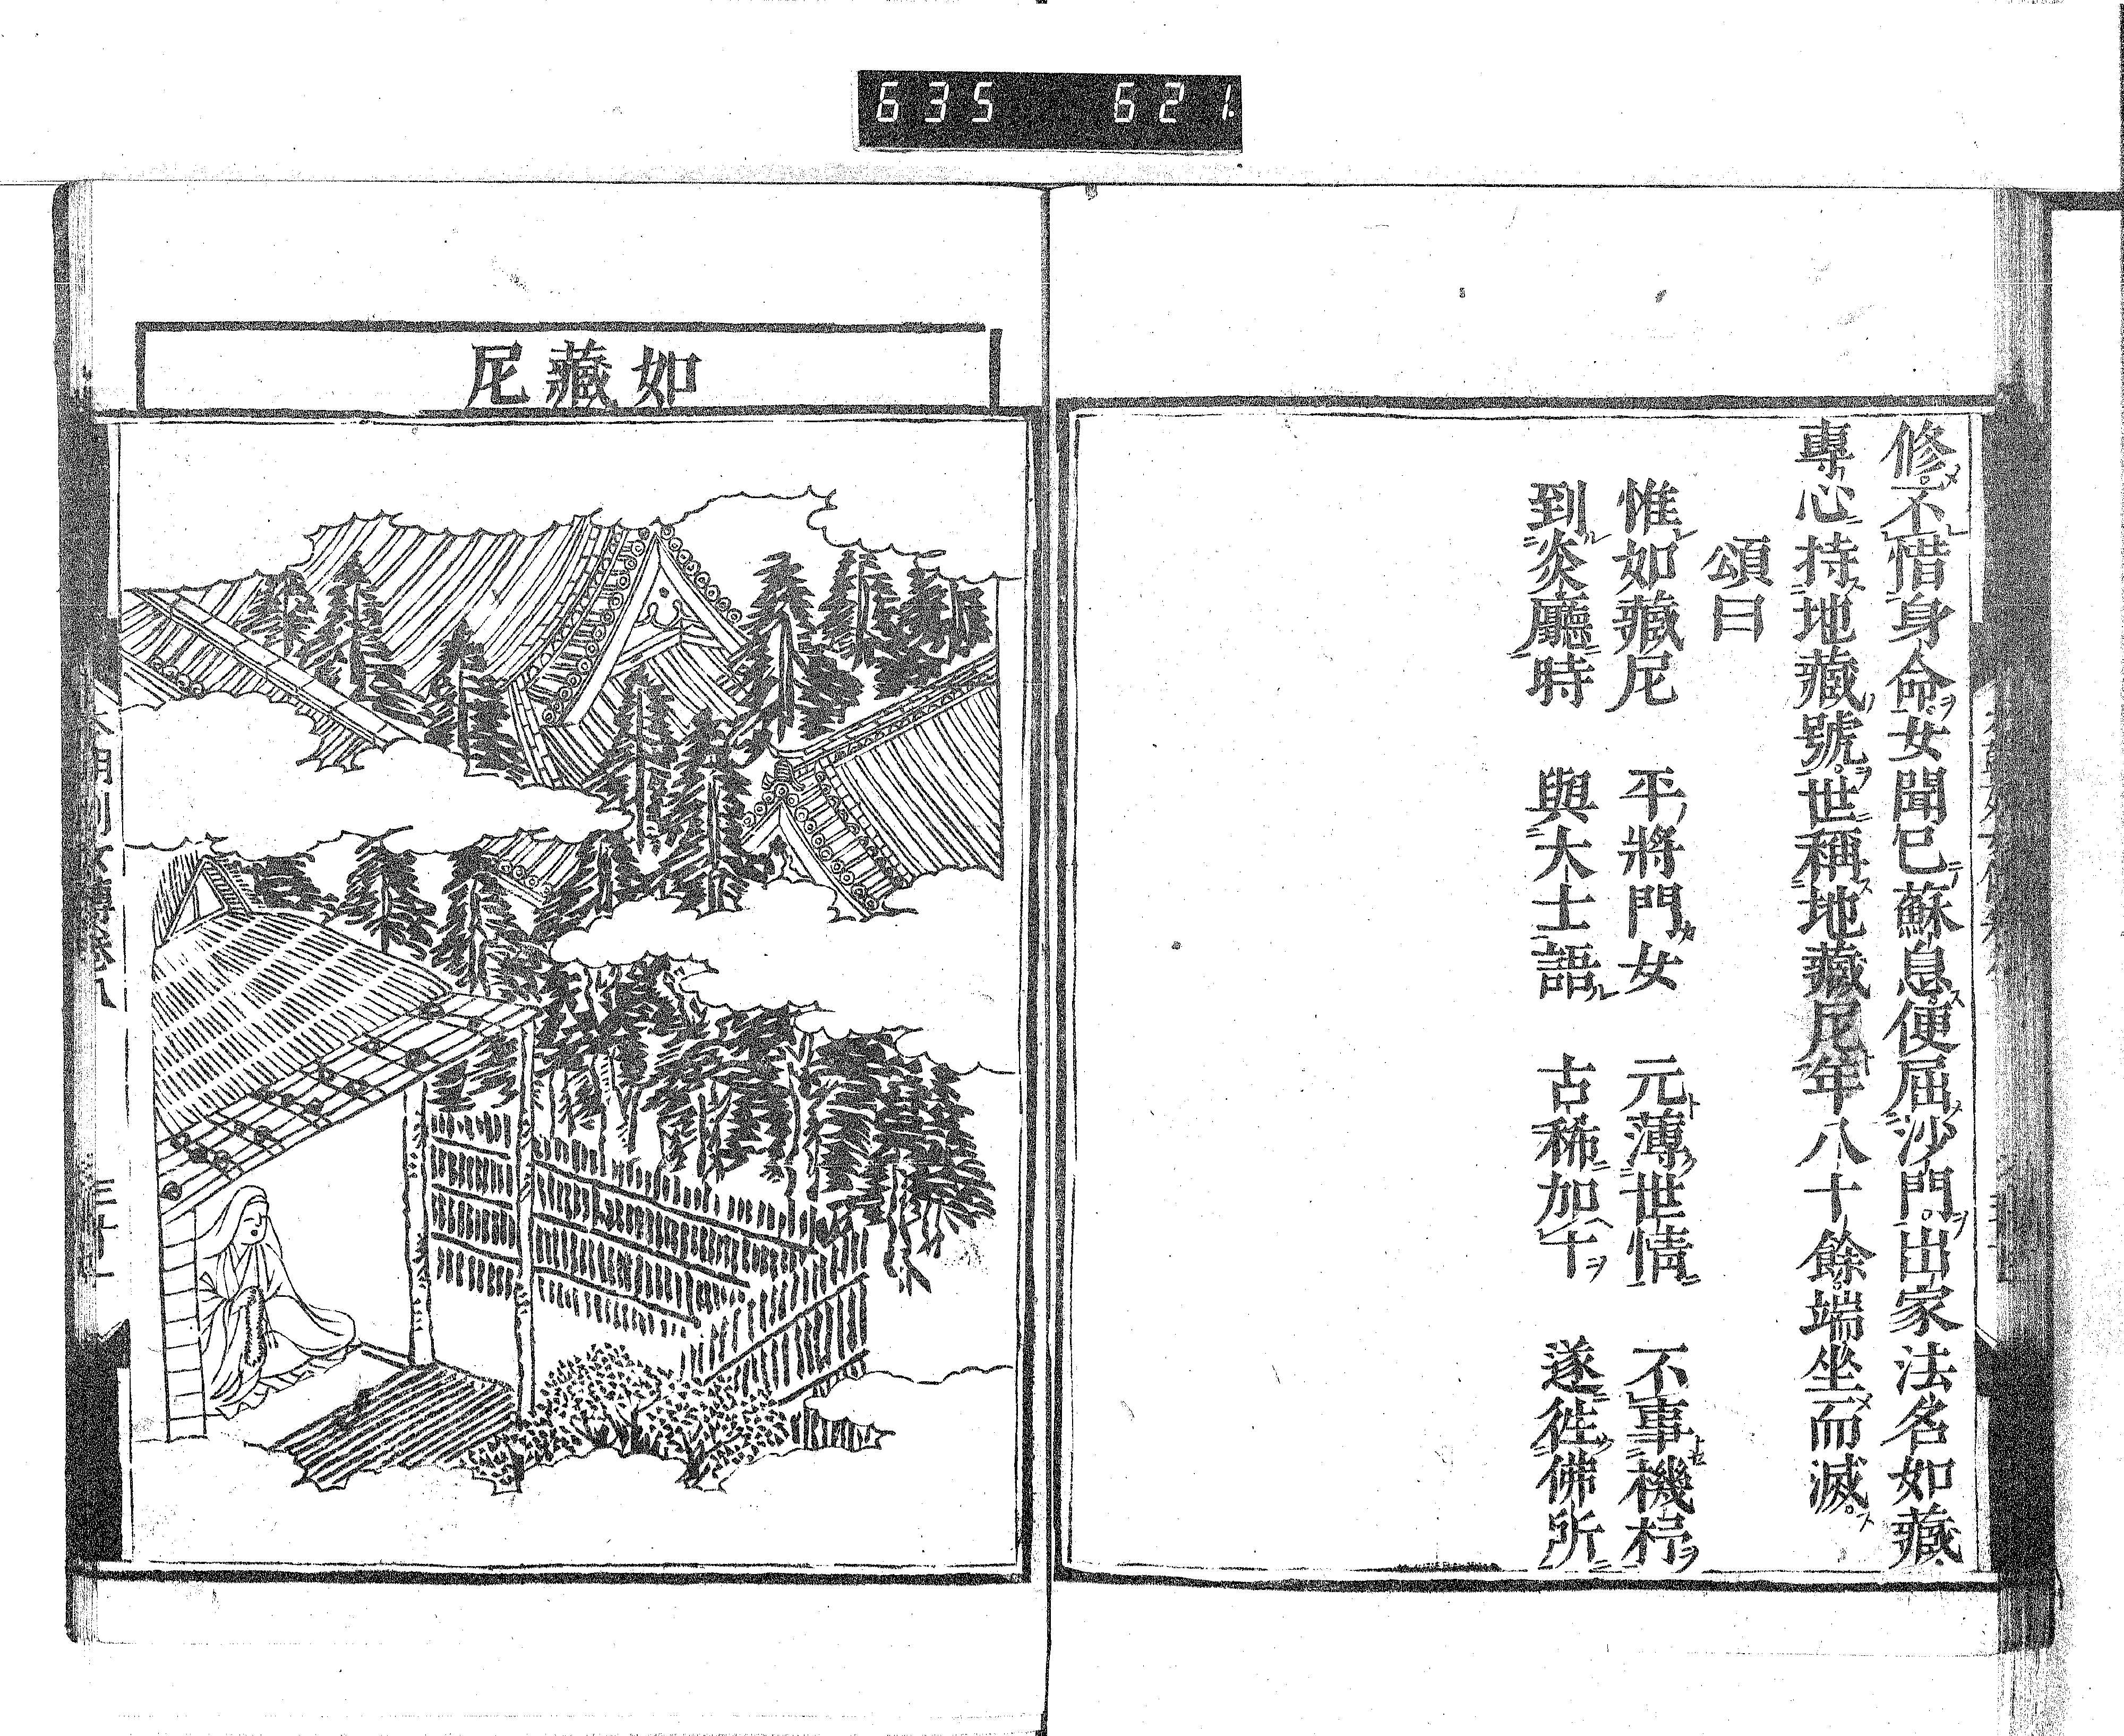 635 621
修不惜身命女聞已蘇息便屈沙門出家法名如藏
專心持地藏號世稱地藏尼年八十餘端坐而滅
頌曰
惟如藏尼 平將門女 元薄世情 不事機杼
到炎廳時 與大士語 古稀加十 遂往佛所
如藏尼